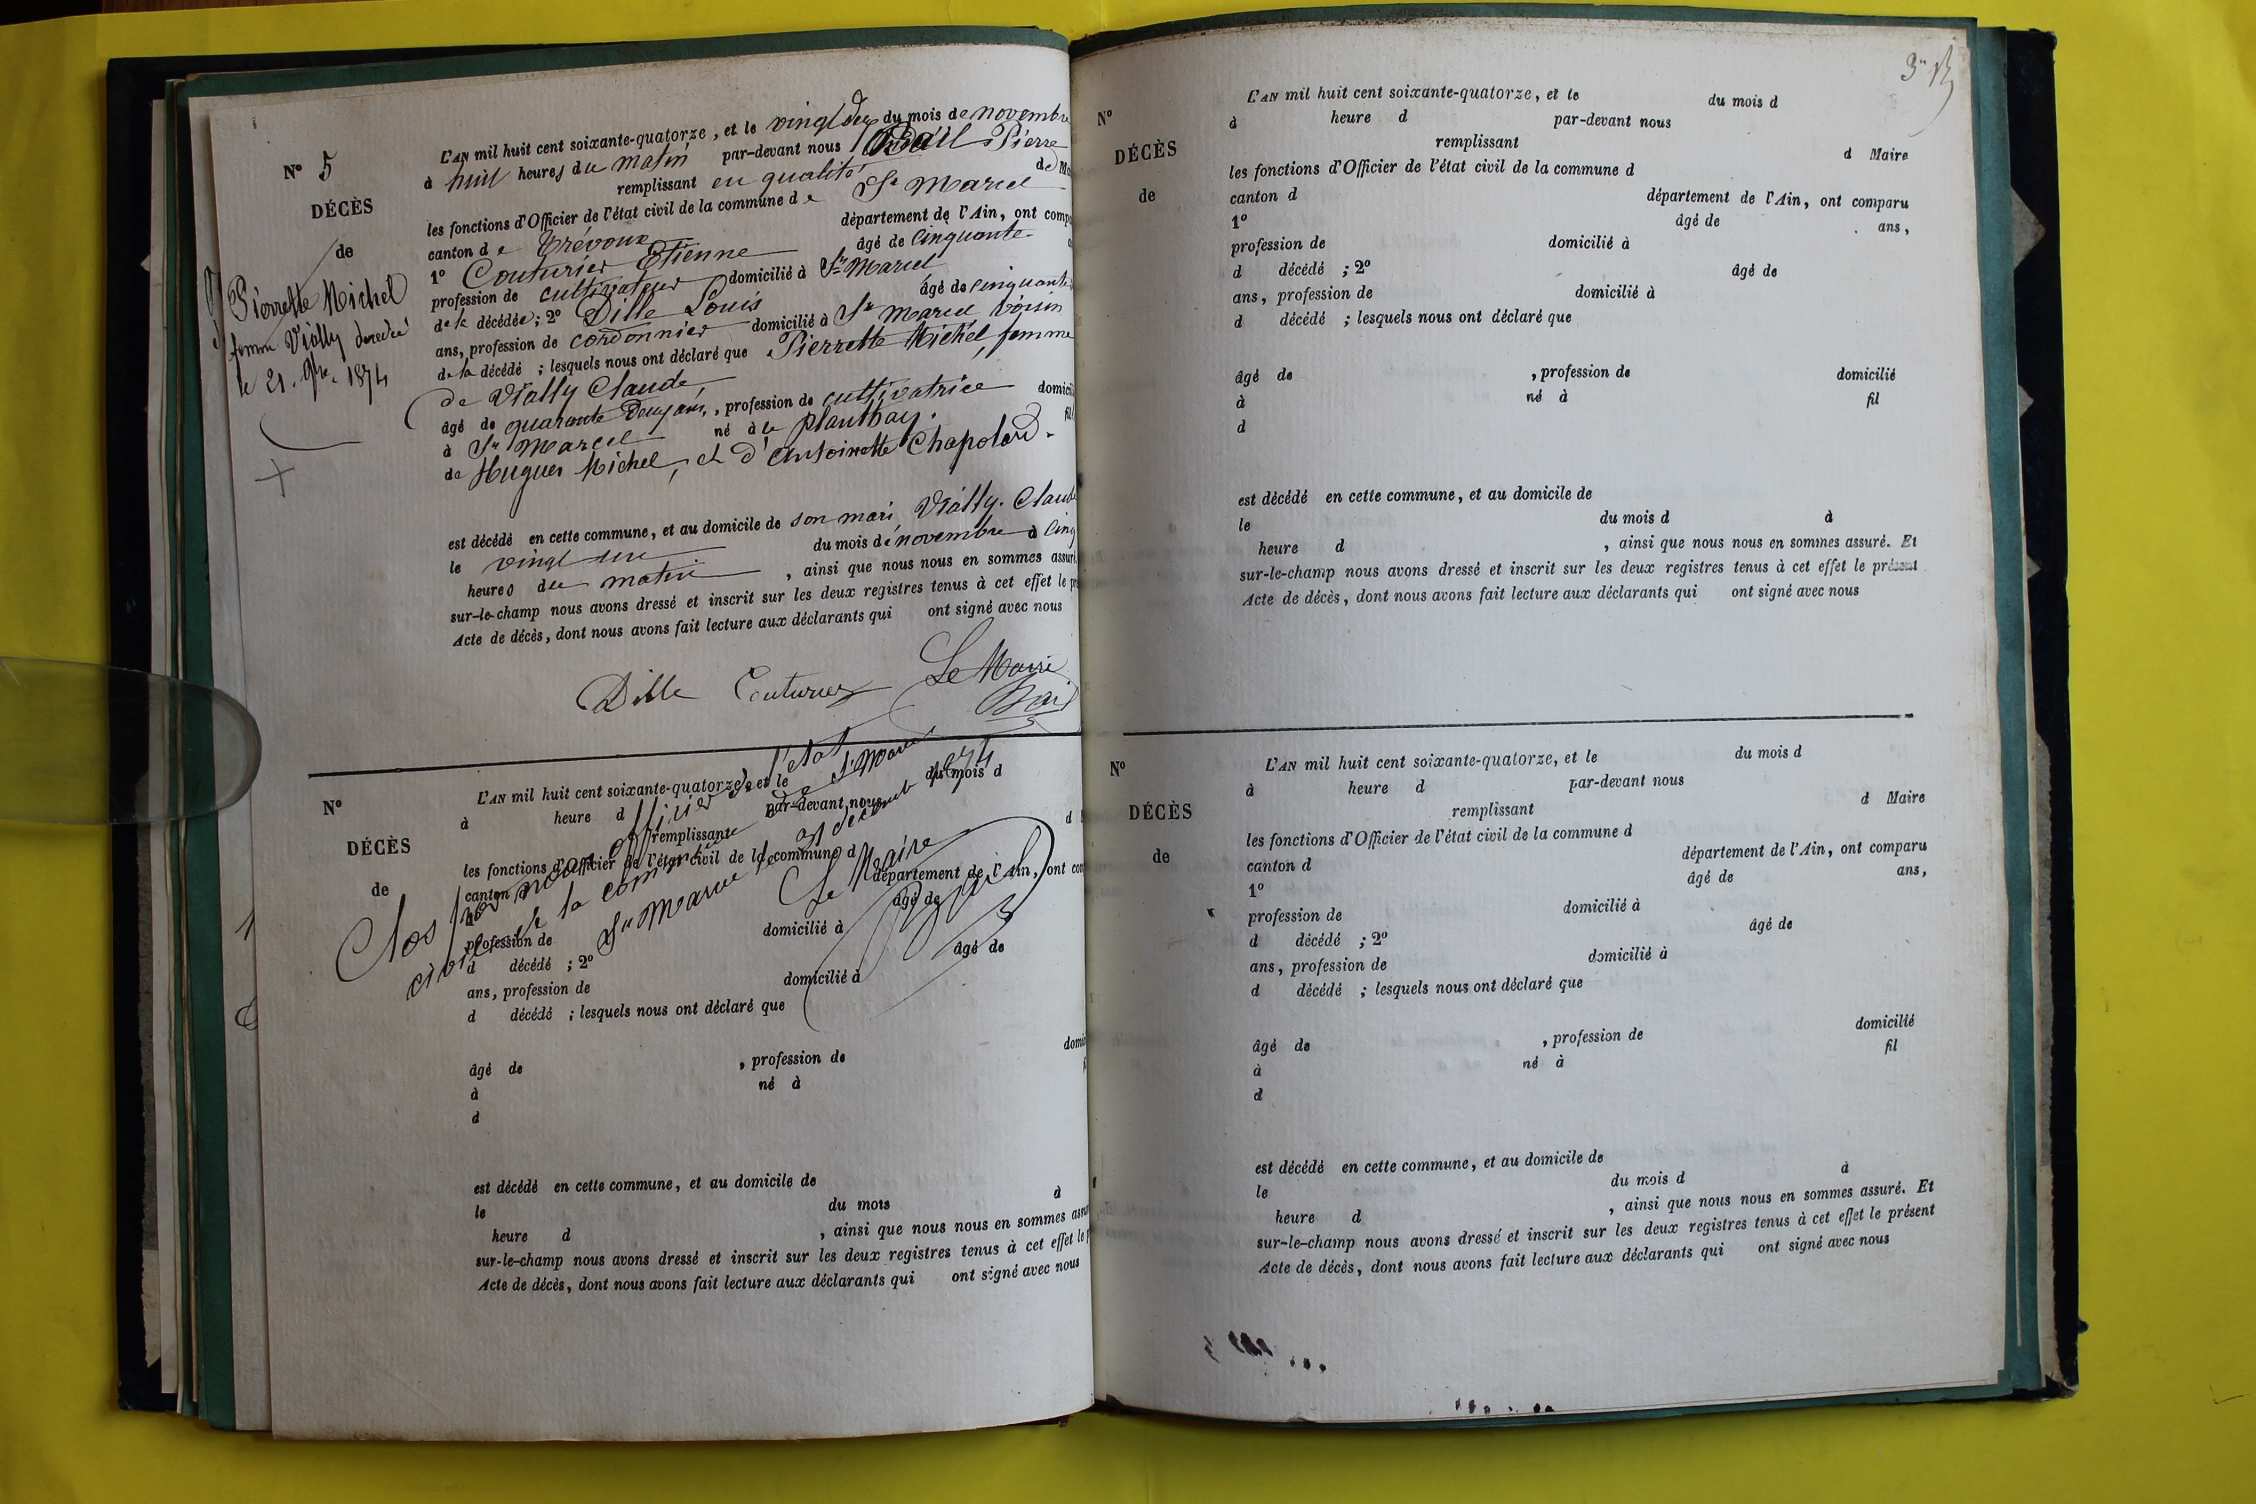 N° 5
DÉCÈS
de
Pierrette Michel
femme Vially décédée
le 21. 9bre. 1874
L'AN mil huit cent soixante-quatorze, et le vingt deux du mois de novembre
à huit heures du matin par-devant nous Bail Pierre
remplissant en qualité de
les fonctions d'Officier de l'état civil de la commune de St Marcel
canton de Trévoux département de l'Ain, ont comp
1° Couturier Etienne âgé de cinquante
profession de cultivateur domicilié à St Marcel
de la décédée; 2° Dille Louis âgé de cinquante
ans, profession de cordonnier domicilié à St Marcel voisin
de la décédé ; lesquels nous ont déclaré que Pierrette Michel, femme
de Vially Claude,
âgé de quarante deux ans, profession de cultivatrice domicil
à St Marcel né à le plantay. fil
de Hugues Michel, et d'Antoinette Chapolard.
est décédé en cette commune, et au domicile de son mari Vially. Claude
le vingt une du mois de novembre à cinq
heures du matin, ainsi que nous nous en sommes assuré.
sur-le-champ nous avons dressé et inscrit sur les deux registres tenus à cet effet le pr
Acte de décès, dont nous avons fait lecture aux déclarants qui ont signé avec nous
Dille Couturier Le Maire
Bail
N°
DÉCÈS
de
L'AN mil huit cent soixante-quatorze, et le du mois d
à heure d par-devant nous
remplissant d
les fonctions d'Officier de l'état civil de la commune d
canton d département de l'Ain, ont com
1° âgé de
profession de domicilié à
d décédé ; 2° âgé de
ans, profession de domicilié à
d décédé ; lesquels nous ont déclaré que
Clos par nous officier de l'état
civil de la commune de St Marcel
St Marcel le 31 décembre 1874
Le Maire
Bail
âgé de , profession de domic
à né à
d
est décédé en cette commune, et au domicile de
le du mois à
heure d , ainsi que nous nous en sommes assur
sur-le-champ nous avons dressé et inscrit sur les deux registres tenus à cet effet le p
Acte de décès, dont nous avons fait lecture aux déclarants qui ont signé avec nous
N°
DÉCÈS
de
L'AN mil huit cent soixante-quatorze, et le du mois d
à heure d par-devant nous
remplissant d Maire
les fonctions d'Officier de l'état civil de la commune d
canton d département de l'Ain, ont comparu
1° âgé de ans,
profession de domicilié à
d décédé ; 2° âgé de
ans, profession de domicilié à
d décédé ; lesquels nous ont déclaré que
âgé de , profession de domicilié
à né à fil
d
est décédé en cette commune, et au domicile de
le du mois d à
heure d , ainsi que nous nous en sommes assuré. Et
sur-le-champ nous avons dressé et inscrit sur les deux registres tenus à cet effet le présent
Acte de décès, dont nous avons fait lecture aux déclarants qui ont signé avec nous
N°
DÉCÈS
de
L'AN mil huit cent soixante-quatorze, et le du mois d
à heure d par-devant nous
remplissant d Maire
les fonctions d'Officier de l'état civil de la commune d
canton d département de l'Ain, ont comparu
1° âgé de ans,
profession de domicilié à
d décédé ; 2° âgé de
ans, profession de domicilié à
d décédé ; lesquels nous ont déclaré que
âgé de , profession de domicilié
à né à fil
d
est décédé en cette commune, et au domicile de
le du mois d à
heure d , ainsi que nous nous en sommes assuré. Et
sur-le-champ nous avons dressé et inscrit sur les deux registres tenus à cet effet le présent
Acte de décès, dont nous avons fait lecture aux déclarants qui ont signé avec nous